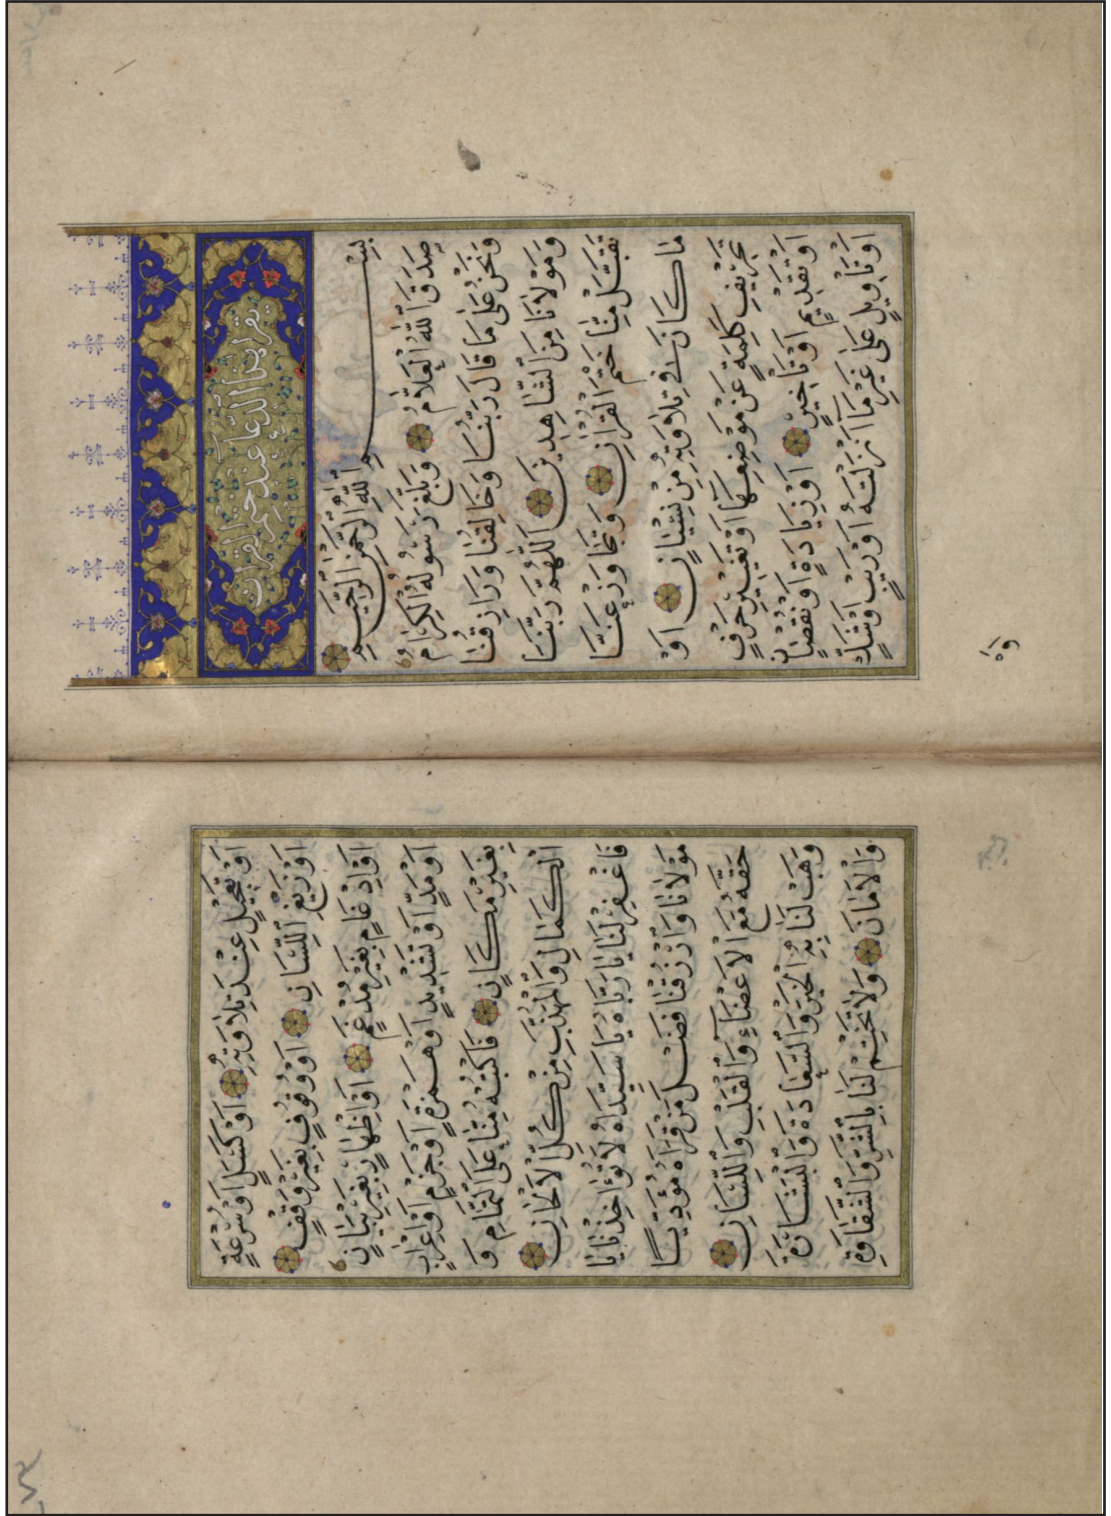 يقرا هذا الدعا عند ختم القران
بِسْمِ اللّٰهِ الرَّحْمٰنِ الرَّحِيمِ
صَدَقَ اللّٰهُ الْعَلَّامُ وَبَلَّغَ رَسُولُهُ الْكِرَامُ
وَنَحْنُ عَلٰى مَا قَالَ رَبُّنَا وَخَالِقُنَا وَرَازِقُنَا
وَمَوْلَانَا مِنَ الشَّاهِدِينَ اَللّٰهُمَّ رَبَّنَا
تَقَبَّلْ مِنَّا خَتْمَ الْقُرْاٰنِ وَتَجَاوَزْ عَنَّا
مَا كَانَ فِي تِلَاوَتِهِ مِنْ نِسْيَانٍ اَوْ
تَحْرِيفِ كَلِمَةٍ عَنْ مَوْضِعِهَا اَوْ تَغْيِيرِ حَرْفٍ
اَوْ تَقْدِيمٍ اَوْ تَاْخِيرٍ اَوْ زِيَادَةٍ اَوْ نُقْصَانٍ
اَوْ تَاْوِيلٍ عَلٰى غَيْرِ مَا اَنْزَلْتَهُ اَوْ رَيْبٍ اَوْ شَكٍّ
اَوْ تَعْجِيلٍ عِنْدَ تِلَاوَتِهِ اَوْ كَسَلٍ اَوْ سُرْعَةٍ
اَوْ زَيْغِ اللِّسَانِ اَوْ وُقُوفٍ بِغَيْرِ وَقْفٍ
اَوْ اِدْغَامٍ بِغَيْرِ مُدْغَمٍ اَوْ اِظْهَارٍ بِغَيْرِ بَيَانٍ
اَوْ مَدٍّ اَوْ تَشْدِيدٍ اَوْ هَمْزَةٍ اَوْ جَزْمٍ اَوْ اِعْرَابٍ
بِغَيْرِ مَكَانٍ فَاكْتُبْهُ مِنَّا عَلَى التَّمَامِ وَ
الْكَمَالِ وَالْمُهَذَّبِ مِنْ كُلِّ الْاَلْحَانِ
فَاغْفِرْ لَنَا يَا رَبَّاهُ يَا سَيِّدَاهُ لَا تُؤَاخِذْنَا يَا
مَوْلَانَا وَارْزُقْنَا فَضْلَ مَنْ قَرَاَهُ مُؤَدِّيًا
حَقَّهُ مَعَ الْاَعْضَاءِ وَالْقَلْبِ وَاللِّسَانِ
وَهَبْ لَنَا بِهِ الْخَيْرَ وَالسَّعَادَةَ وَالْبَشَارَةَ
وَالْاَمَانَ وَلَا تَخْتِمْ لَنَا بِالشَّرِّ وَالشَّقَاوَةِ